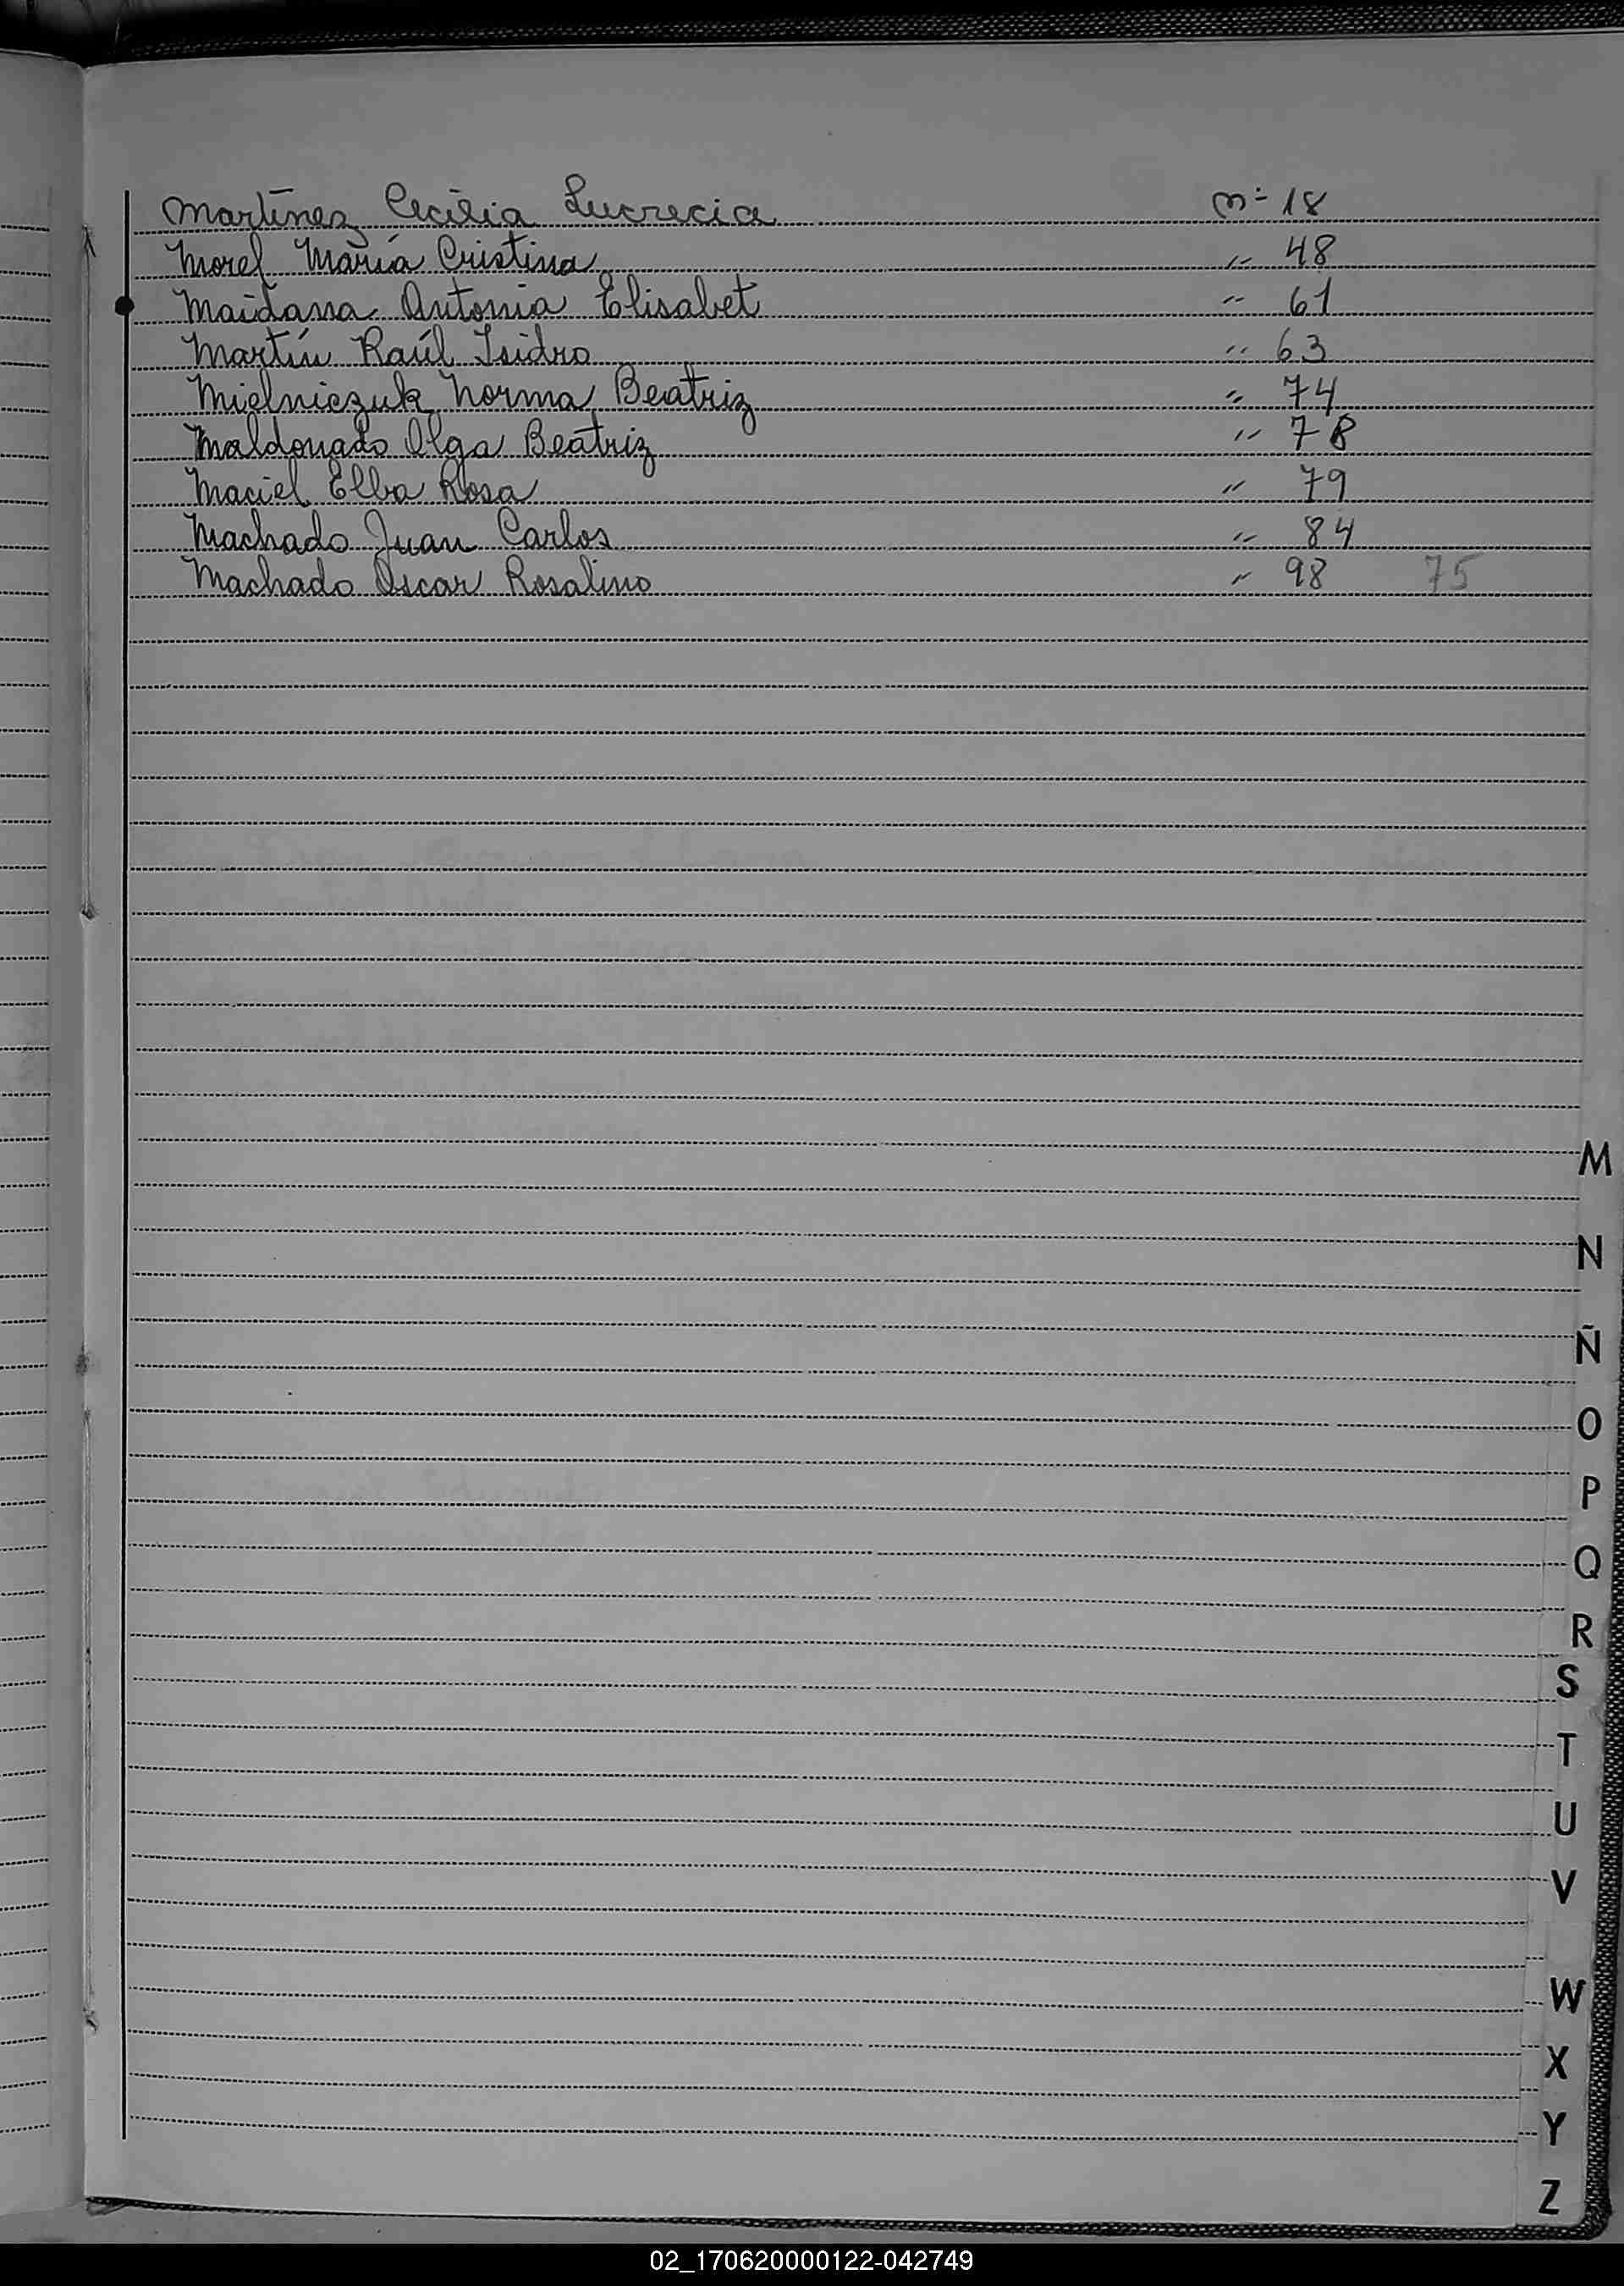 Martínez Cecilia Lucrecia nº 18
Morel María Cristina " 48
Maidana Antonia Elisabet " 61
Martín Raúl Isidro " 63
Mielniczuk Norma Beatriz " 74
Maldonado Olga Beatriz " 78
Maciel Elba Rosa " 79
Machado Juan Carlos " 84
Machado Oscar Rosalino " 98 75
M
N
Ñ
O
P
Q
R
S
T
U
V
W
X
Y
Z
02_170620000122-042749